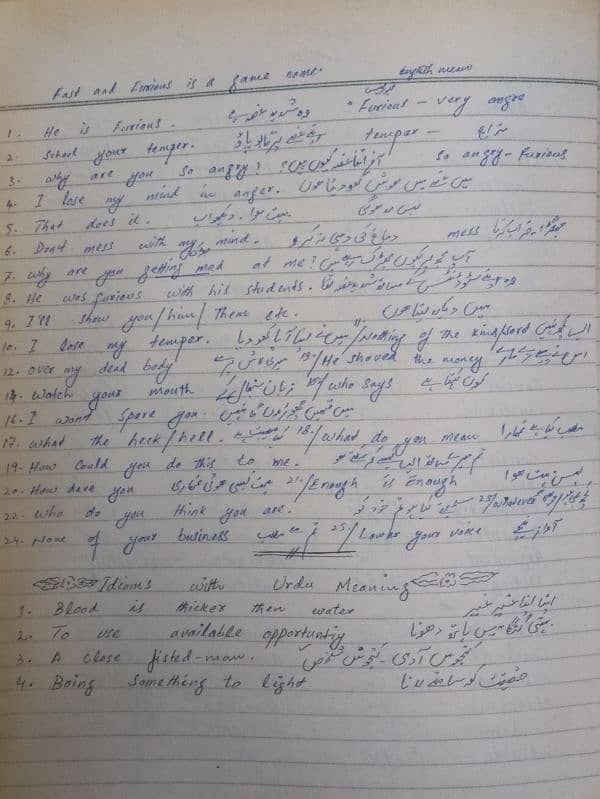 Fast and Furious is a game name. English mean
1. He is Furious. وہ شدید غصہ ہے "Furious - very angre
2. School your temper. اپنے غصے پر قابو پاؤ temper - مزاج
3. Why are you so angry? آخر اتنا غصہ کیوں ہیں؟ so angry - Furious
4. I lose my mind in anger. میں غصے میں ہوش کھو دیتا ہوں
5. That does it. بہت ہوا۔ دیکھو اب بس ہو گی
6. Don't mess with my mind. دماغ کی دہی نہ کرو mess خراب کرنا
7. Why are you getting mad at me? آپ مجھ پر کیوں بھڑک رہے ہیں
8. He was furious with his students. وہ اپنے سٹوڈنٹس کے ساتھ شدید غصہ تھا
9. I'll show you/him/Them etc. میں دیکھ لیتا ہوں
10. I lose my temper. میں نے اپنا آپا کھو دیا 11/Nothing of the kind/sord ایسا کچھ نہیں
12. over my dead body میری لاش پر سے 13./He shoved the money اس نے پیسے
14. Watch your mouth زبان سنبھال کے 15/who says کون کہتا ہے
16. I wont spare you میں تمہیں چھوڑوں گا نہیں
17. what the heck/hell. کیا مصیبت ہے 18./What do you mean مطلب کیا ہے تمھارا
19. How could you do this to me. تم میرے ساتھ ایسا کیسے کر سکتے ہو
20. How dare you ہمت کیسی ہوئی تمھاری 21./Enough is Enough بس بہت ہوا
22. Who do you think you are. سمجھتے کیا ہو تم خود کو 23/Whatever
24. None of your business تم سے مطلب 25./Lower your voice آواز نیچے
Idioms with Urdu Meaning
1. Blood is thicker then water اپنا اپنا غیر غیر
2. To use available opportunity بہتی گنگا میں ہاتھ دھونا
3. A close fisted-man. کنجوس آدمی - کنجوس شخص
4. Being something to light حقیقت کو سامنے لانا